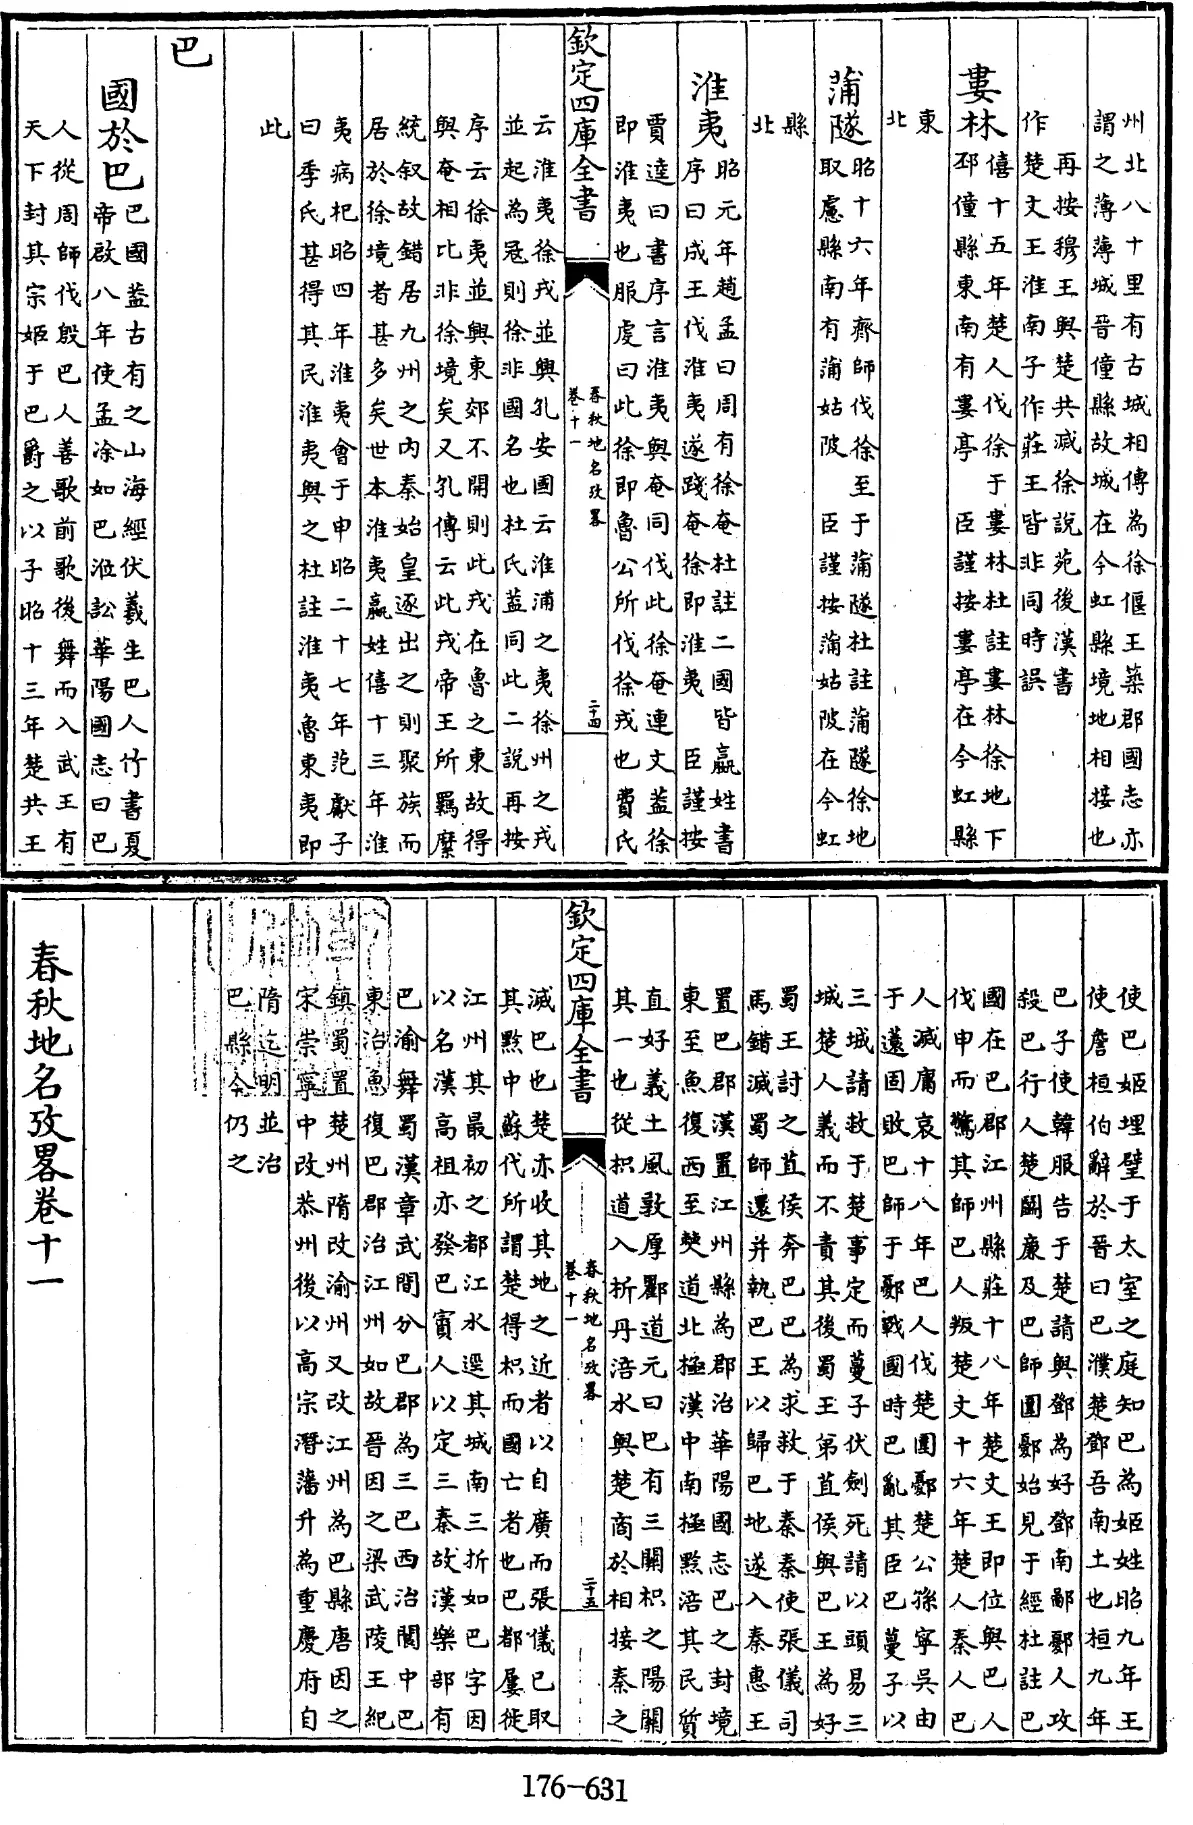 州北八十里有古城相傳為徐偃王築郡國志亦
謂之薄薄城晉僮縣故城在今虹縣境地相接也
再按穆王與楚共滅徐說苑後漢書
作楚文王淮南子作莊王皆非同時誤
婁林僖十五年楚人伐徐于婁林杜註婁林徐地下
邳僮縣東南有婁亭 臣謹按婁亭在今虹縣
東
北
蒲隧昭十六年齊師伐徐至于蒲隧杜註蒲隧徐地
取慮縣南有蒲姑陂 臣謹按蒲姑陂在今虹
縣
北
淮夷昭元年趙孟曰周有徐奄杜註二國皆嬴姓書
序曰成王伐淮夷遂踐奄徐即淮夷 臣謹按
賈逵曰書序言淮夷與奄同伐此徐奄連文蓋徐
即淮夷也服虔曰此徐即魯公所伐徐戎也費氏
欽定四庫全書
春秋地名攷畧
卷十一
二十四
云淮夷徐戎並興孔安國云淮浦之夷徐州之戎
並起為寇則徐非國名也杜氏蓋同此二說再按
序云徐夷並興東郊不開則此戎在魯之東故得
與奄相比非徐境矣又孔傳云此戎帝王所羈縻
統叙故錯居九州之内秦始皇逐出之則聚族而
居於徐境者甚多矣世本淮夷嬴姓僖十三年淮
夷病杞昭四年淮夷會于申昭二十七年范獻子
曰季氏甚得其民淮夷與之杜註淮夷魯東夷即
此
巴
國於巴巴國蓋古有之山海經伏羲生巴人竹書夏
帝啟八年使孟涂如巴涖訟華陽國志曰巴
人從周師伐殷巴人善歌前歌後舞而入武王有
天下封其宗姬于巴爵之以子昭十三年楚共王
使巴姬埋璧于太室之庭知巴為姬姓昭九年王
使詹桓伯辭於晉曰巴濮楚鄧吾南土也桓九年
巴子使韓服告于楚請與鄧為好鄧南鄙鄾人攻
殺巴行人楚鬭廉及巴師圍鄾始見于經杜註巴
國在巴郡江州縣莊十八年楚文王即位與巴人
伐申而驚其師巴人叛楚文十六年楚人秦人巴
人滅庸哀十八年巴人伐楚圍鄾楚公孫寧吳由
于薳固敗巴師于鄾戰國時巴亂其臣巴蔓子以
三城請救于楚事定而蔓子伏劍死請以頭易三
城楚人義而不責其後蜀王第苴侯與巴王為好
蜀王討之苴侯奔巴巴為求救于秦秦使張儀司
馬錯滅蜀師還并執巴王以歸巴地遂入秦惠王
置巴郡漢置江州縣為郡治華陽國志巴之封境
東至魚復西至僰道北極漢中南極黔涪其民質
直好義土風敦厚酈道元曰巴有三關枳之陽關
其一也從枳道入析丹涪水與楚商於相接秦之
欽定四庫全書
春秋地名攷畧
卷十一
二十五
滅巴也楚亦收其地之近者以自廣而張儀已取
其黔中蘇代所謂楚得枳而國亡者也巴都屢徙
江州其最初之都江水逕其城南三折如巴字因
以名漢高祖亦發巴賨人以定三秦故漢樂部有
巴渝舞蜀漢章武間分巴郡為三巴西治閬中巴
東治魚復巴郡治江州如故晉因之梁武陵王紀
鎮蜀置楚州隋改渝州又改江州為巴縣唐因之
宋崇寧中改恭州後以高宗潛藩升為重慶府自
隋迄明並治
巴縣今仍之
春秋地名攷畧卷十一
176-631